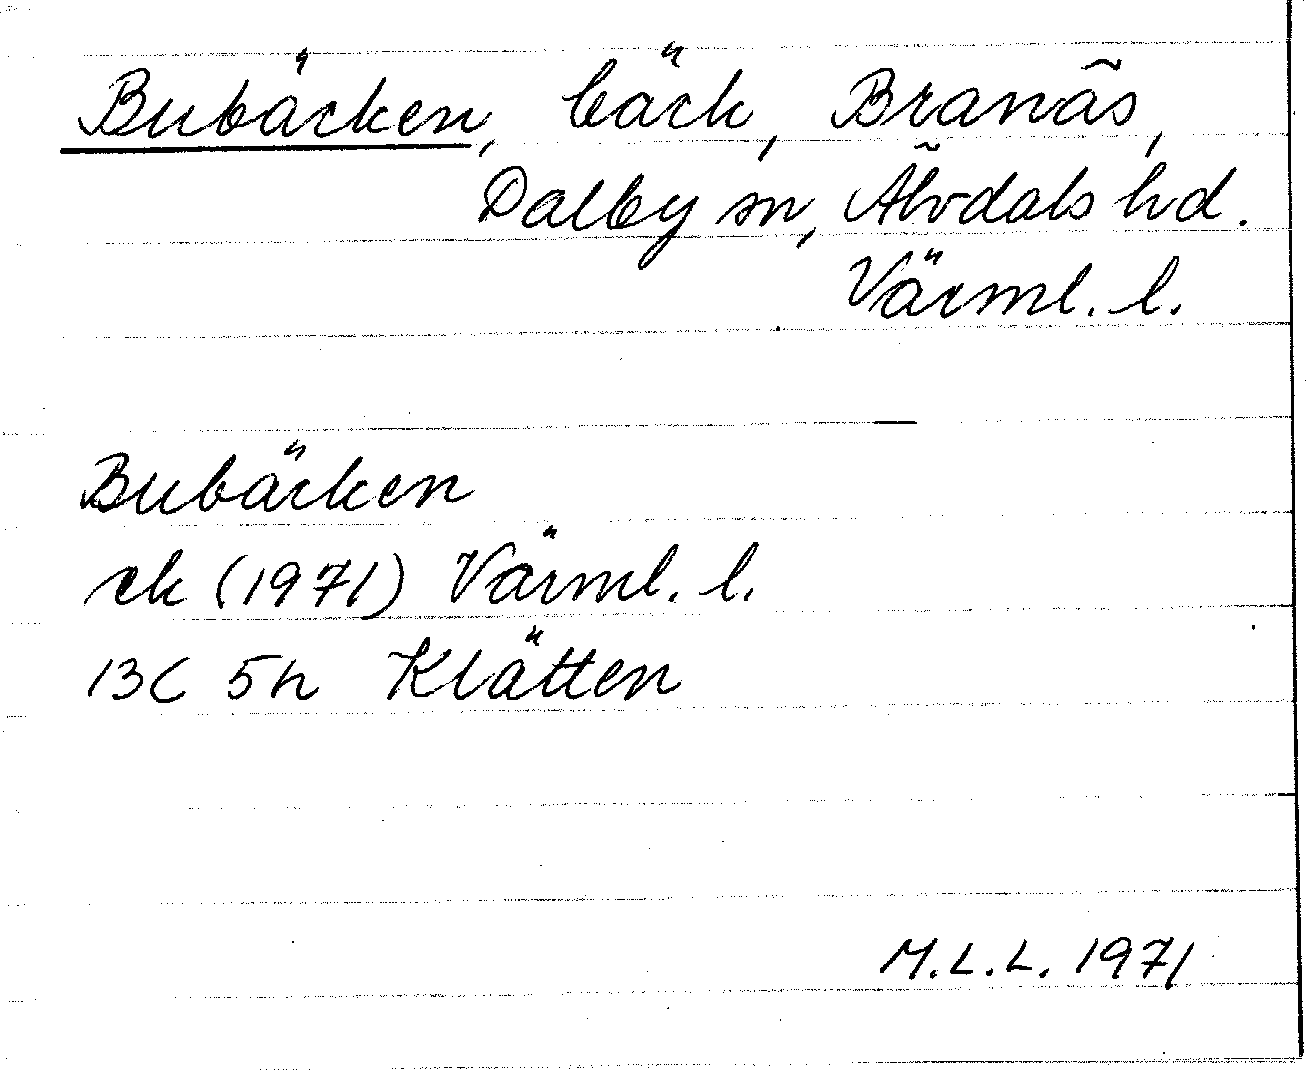 Bubäcken, bäck, Branäs,
Dalby sn, Älvdals hd.
Värml. l.
Bubäcken
ek (1971) Värml. l.
13C 5h Klätten
M.L.L. 1971